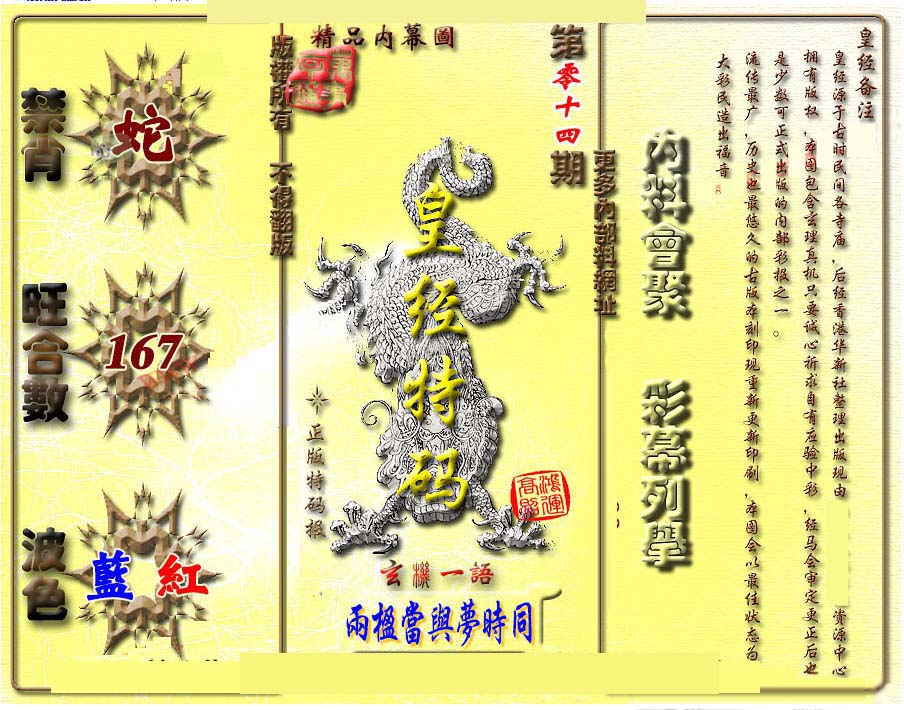 禁肖
蛇
旺合數
167
波色
藍 紅
版權所有 不得翻版
精品内幕圖
第零十四期
皇经特码
正版特码报
鸿運高照
玄機一語
兩楹當與夢時同
更多内部料網址
内料會聚 彩幕列舉
皇经备注
皇经源于古时民间各寺庙，后经香港华新社整理出版现由 资源中心
拥有版权，本图包含玄理真机只要诚心祈求自有应验中彩，经马会审定更正后也
是少数可正式出版的内部彩报之一。
流传最广，历史也最悠久的古版本刻印现重新更新印刷，本图会以最佳状态为
大彩民造出福音